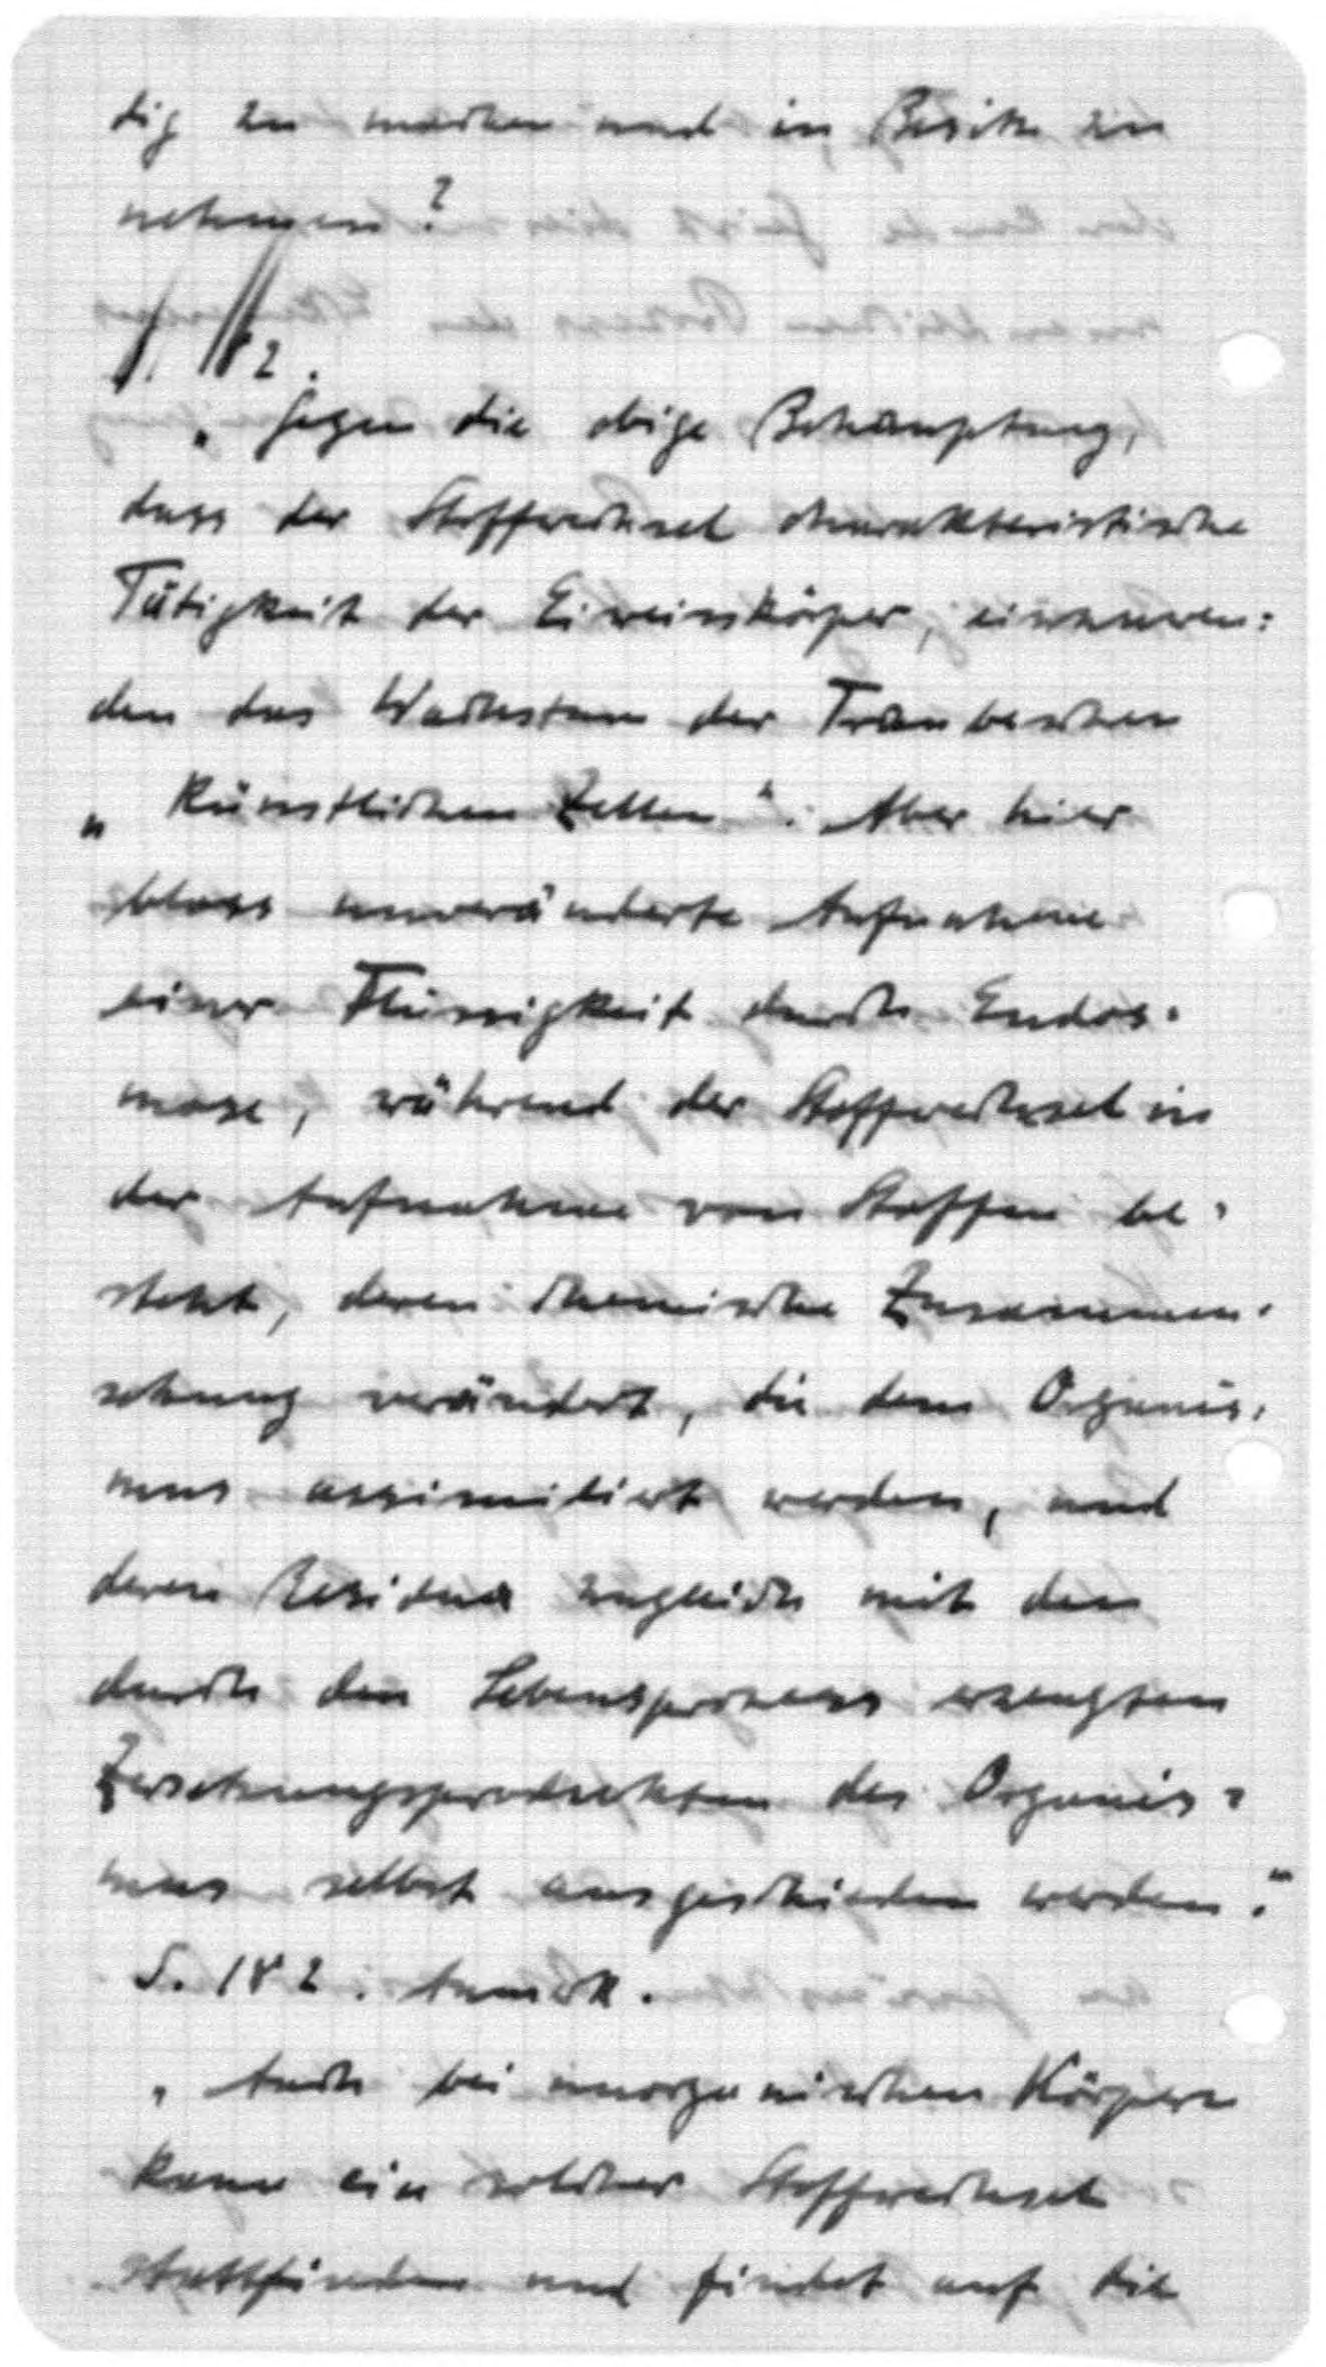 tig zu machen und in Besitz zu
nehmen?
S. 182.
„Gegen die obige Behauptung,
dass der Stoffwechsel charakteristische
Tätigkeit der Eiweisskörper, einzuwen=
den das Wachstum der Traubeschen
„Künstlichen Zellen“. Aber hier
bloss unveränderte Aufnahme
einer Flüssigkeit durch Endos-
mose, während der Stoffwechsel in
der Aufnahme von Stoffen be-
steht, deren chemische Zusammen-
setzung verändert, die dem Organis-
mus assimiliert werden, und
deren Residua zugleich mit den
durch den Lebensprozess erzeugten
Zersetzungsprodukten des Organis-
mus selbst ausgeschieden werden.“
S. 182. Anmerk.
„Auch bei unorganischen Körpern
kann ein solcher Stoffwechsel
stattfinden und findet auf die